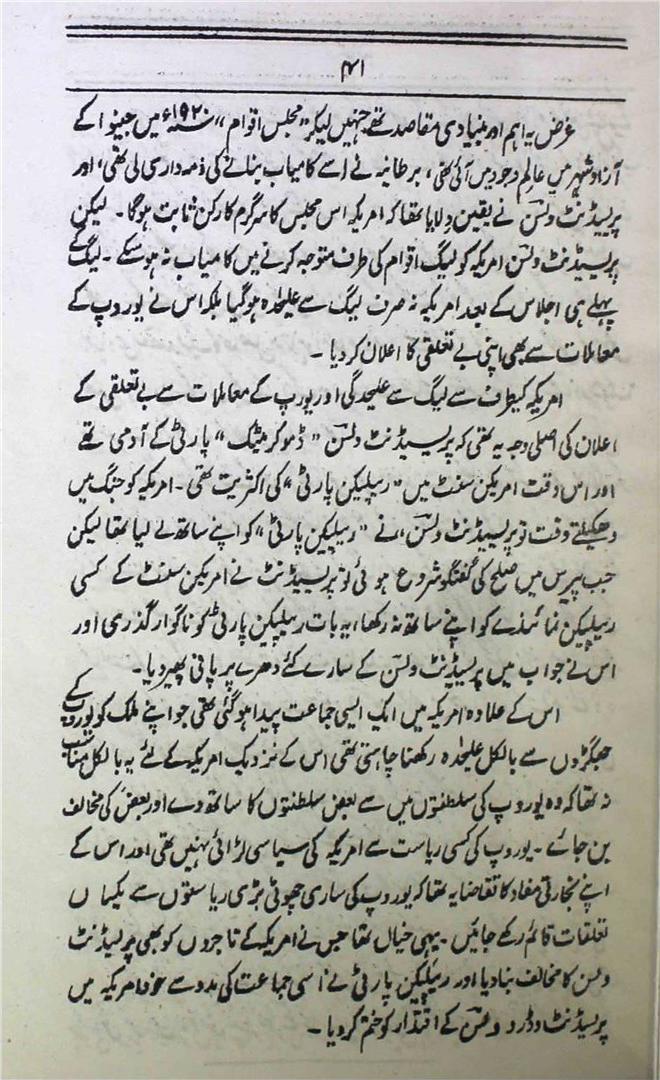 ۴۱
غرض یہ اہم اور بنیادی مقاصد تھے جنہیں لیکر ”مجلس اقوام“ ۱۹۲۰ء میں جینوا کے
آزاد شہر میں عالم وجود میں آئی تھی، برطانیہ نے اسے کامیاب بنانے کی ذمہ داری لی تھی، اور
پریسیڈنٹ ولسن نے یقین دلایا تھا کہ امریکہ اس مجلس کا سرگرم کارکن ثابت ہوگا۔ لیکن
پریسیڈنٹ ولسن امریکہ کو لیگ اقوام کی طرف متوجہ کرنے میں کامیاب نہ ہو سکے۔ لیگ کے
پہلے ہی اجلاس کے بعد امریکہ نہ صرف لیگ سے علیحدہ ہوگیا بلکہ اس نے یوروپ کے
معاملات سے بھی اپنی بے تعلقی کا اعلان کر دیا۔
امریکہ کیطرف سے لیگ سے علیحدگی اور یورپ کے معاملات سے بے تعلقی کے
اعلان کی اصلی وجہ یہ تھی کہ پریسیڈنٹ ولسن ”ڈموکریٹک“ پارٹی کے آدمی تھے
اور اس وقت امریکن سنٹ میں ”ریپلیکن پارٹی“ کی اکثریت تھی۔ امریکہ کو جنگ میں
دھکیلتے وقت تو پریسیڈنٹ ولسن، نے ”ریپلیکن پارٹی“ کو اپنے ساتھ لے لیا تھا لیکن
جب پیرس میں صلح کی گفتگو شروع ہوئی تو پریسیڈنٹ نے امریکن سنٹ کے کسی
ریپلیکن نمائندے کو اپنے ساتھ نہ رکھا، یہ بات ریپلیکن پارٹی کو ناگوار گذری اور
اس نے جواب میں پریسیڈنٹ ولسن کے سارے کئے دھرے پر پانی پھیر دیا۔
اس کے علاوہ امریکہ میں ایک ایسی جماعت پیدا ہوگئی تھی جو اپنے ملک کو یوروپ کے
جھگڑوں سے بالکل علیحدہ رکھنا چاہتی تھی اس کے نزدیک امریکہ کے لئے یہ بالکل مناسب
نہ تھا کہ وہ یوروپ کی سلطنتوں میں سے بعض سلطنتوں کا ساتھ دے اور بعض کی مخالف
بن جائے۔ یوروپ کی کسی ریاست سے امریکہ کی سیاسی لڑائی نہیں تھی اور اس کے
اپنے تجارتی مفاد کا تقاضا یہ تھا کہ یوروپ کی ساری چھوٹی بڑی ریاستوں سے یکساں
تعلقات قائم رکھے جائیں۔ یہی خیال تھا جس نے امریکہ کے تاجروں کو بھی پریسیڈنٹ
ولسن کا مخالف بنا دیا اور ریپلیکن پارٹی نے اسی جماعت کی مدد سے خود امریکہ میں
پریسیڈنٹ وڈرو ولسن کے اقتدار کو ختم کر دیا۔